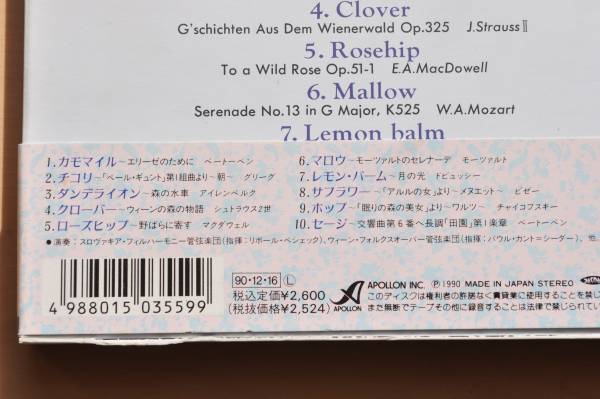 4. Clover
G'schichten Aus Dem Wienerwald Op.325 J.StraussⅡ
5. Rosehip
To a Wild Rose Op.51-1 E.A.MacDowell
6. Mallow
Serenade No.13 in G Major, K525 W.A.Mozart
7. Lemon balm
1.カモマイル〜エリーゼのために ベートーベン
2.チコリ〜「ペール・ギュント」第1組曲より〜朝〜 グリーグ
3.ダンデライオン〜森の水車 アイレンベルク
4.クローバー〜ウィーンの森の物語 シュトラウス2世
5.ローズヒップ〜野ばらに寄す マクダウェル
6.マロウ〜モーツァルトのセレナーデ モーツァルト
7.レモン・バーム〜月の光 ドビュッシー
8.サフラワー〜「アルルの女」より〜メヌエット〜 ビゼー
9.ホップ〜「眠りの森の美女」より〜ワルツ〜 チャイコフスキー
10.セージ〜交響曲第6番ヘ長調「田園」第1楽章 ベートーベン
●演奏：スロヴァキア・フィルハーモニー管弦楽団(指揮：リボール・ペシェック)、ウィーン・フォルクスオーパー管弦楽団(指揮：パウル・カント＝シーダー)、他..
4 988015 035599
90・12・16 Ⓛ
税込定価¥2,600
(税抜価格¥2,524)
APOLLON
APOLLON INC. Ⓟ1990 MADE IN JAPAN STEREO
このディスクは権利者の許諾なく賃貸業に使用することを禁じ
また無断でテープその他に録音することは法律で禁じられてい